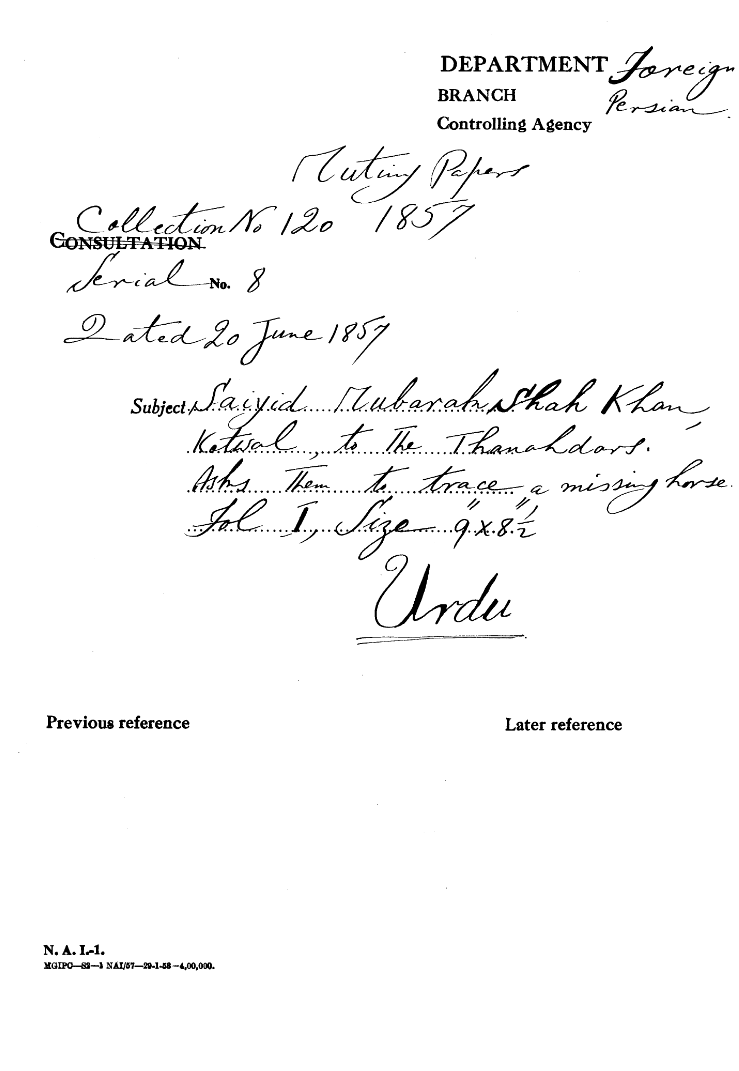 DEPARTMENT Foreign
BRANCH Persian.
Controlling Agency
Mutiny Papers
Collection No 120 1857
CONSULTATION
Serial No. 8
Dated 20 June 1857
Subject Saiyid Mubarah Shah Khan,
Kotwal, to the Thanahdars.
Asks them to trace a missing horse.
Fol 1, Size 9" x 8½"
Urdu
Previous reference Later reference
N. A. I.-1.
MGIPC—S2—1 NAI/57—29-1-58—4,00,000.